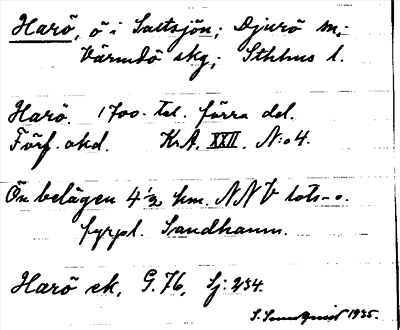 Harö, ö i Saltsjön; Djurö sn;
Värmdö skg; Sthlms l.
Harö. 1700-tal. förra del.
Förf. okd. Kr.A. XXII. N:o 4.
Ön belägen 4 ½ km. NNV lots- o.
fyrpl. Sandhamn.
Harö ek. G. 76, Sj: 234.
1935.